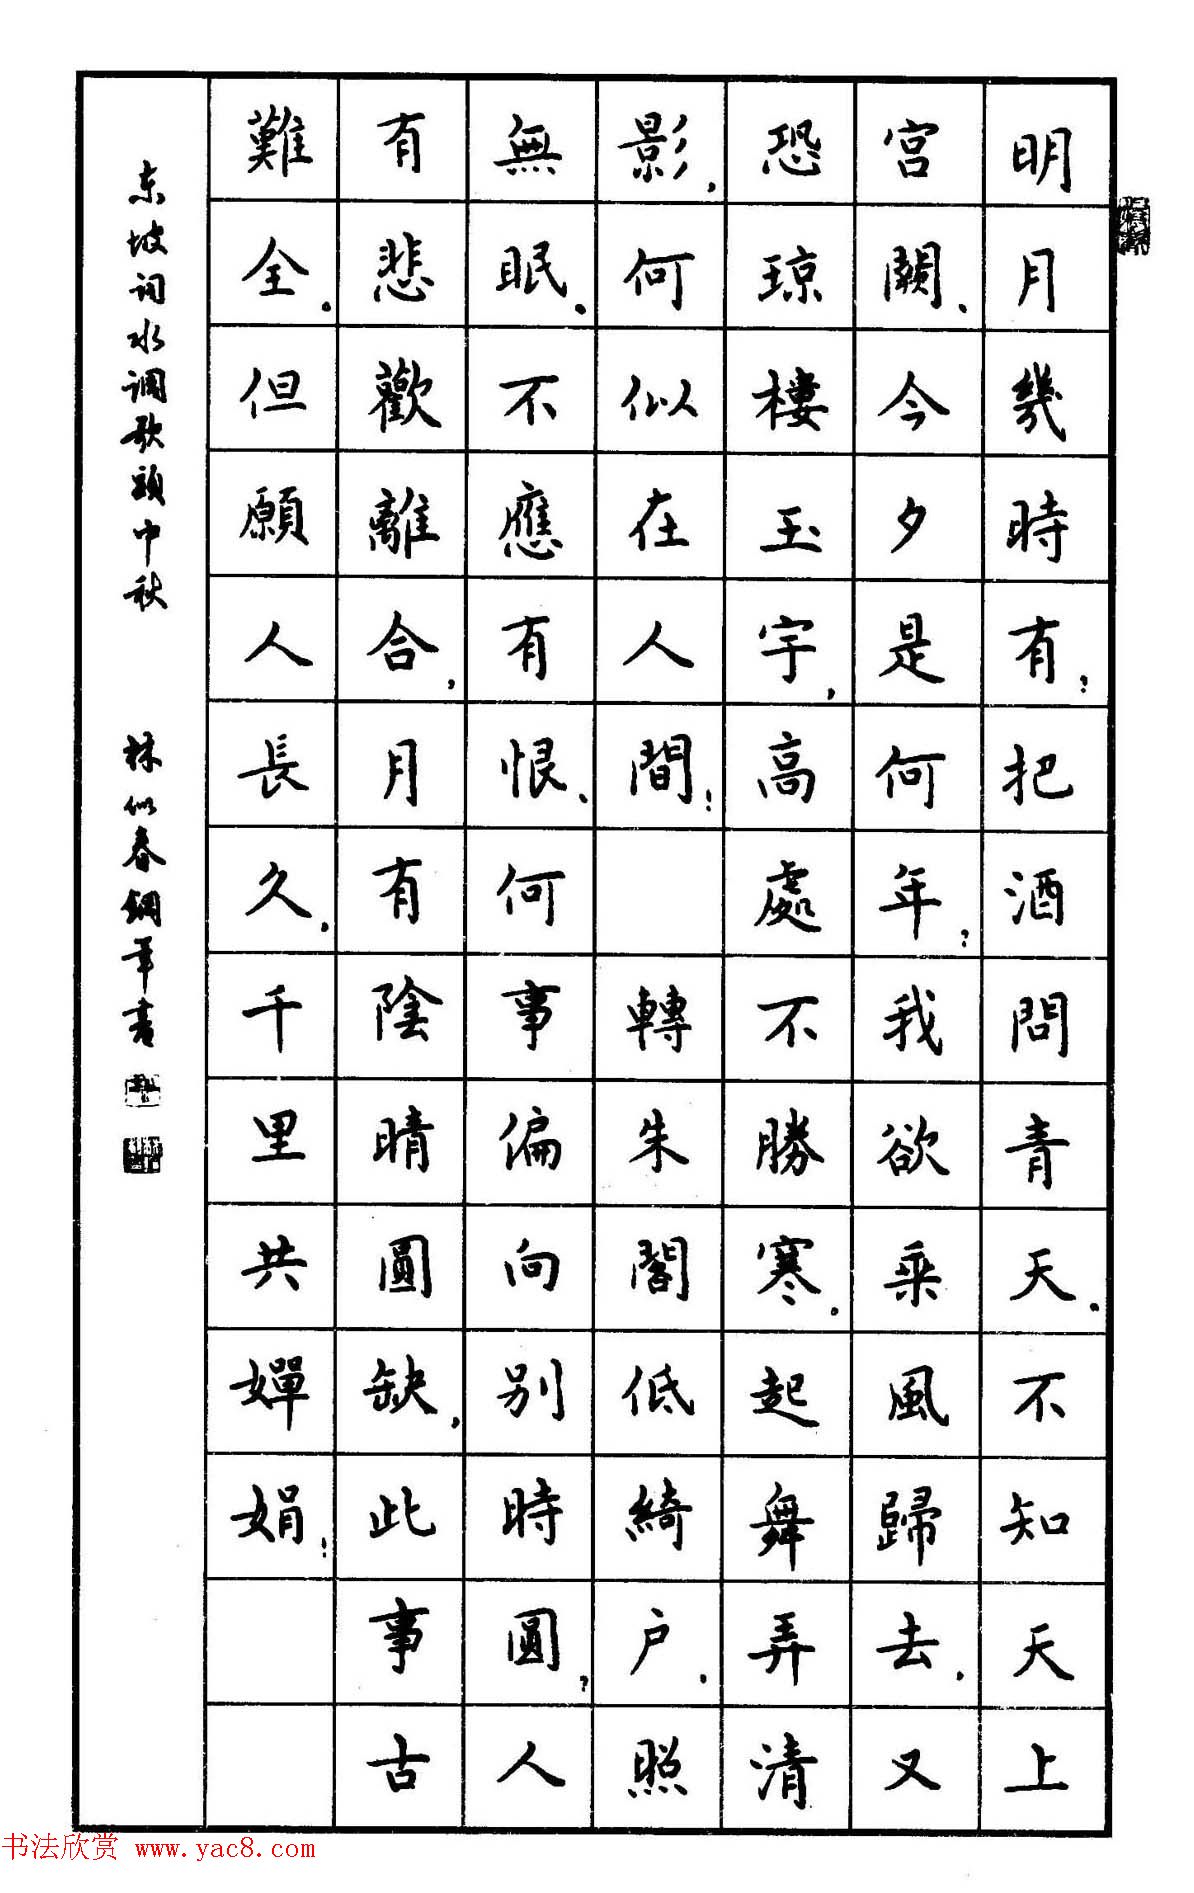 明月幾時有？把酒問青天。不知天上
宮闕、今夕是何年？我欲乘風歸去，又
恐琼樓玉宇，高處不勝寒。起舞弄清
影，何似在人間！轉朱閣低綺户．照
無眠。不應有恨、何事偏向别時圓？人
有悲歡離合，月有陰晴圓缺，此事古
難全。但願人長久．千里共嬋娟！
东坡词水调歌頭中秋 林似春鋼筆書
书法欣赏 www.yac8.com